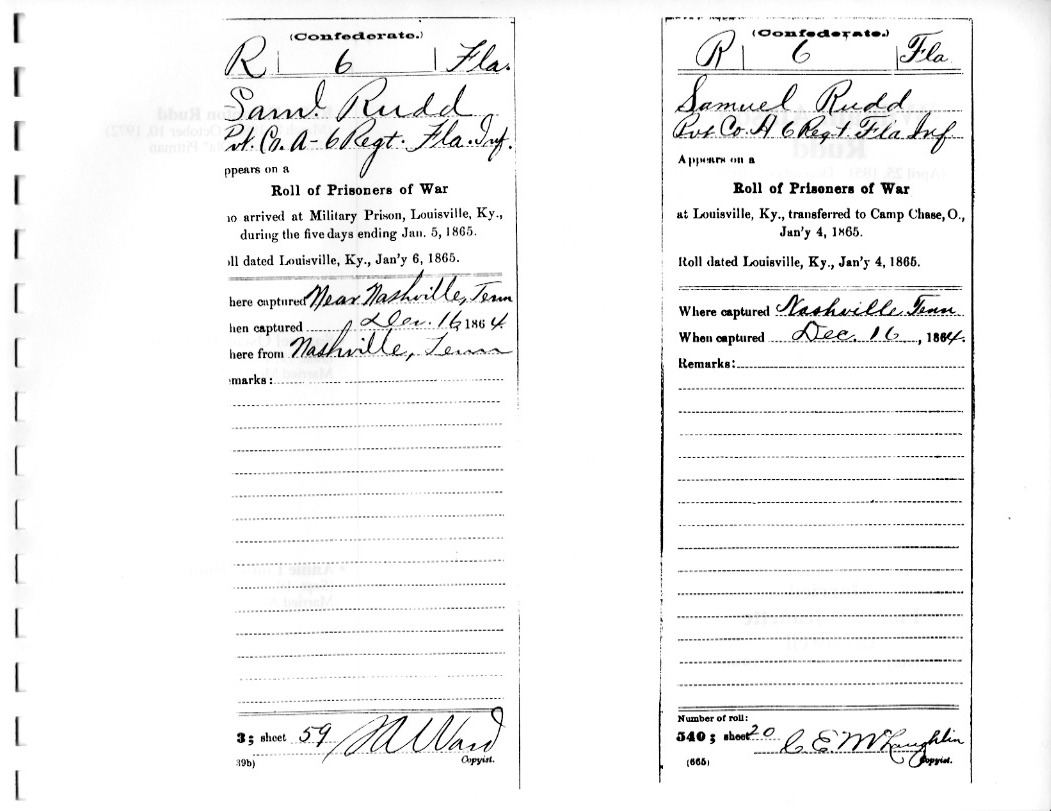 (Confederate.)
R | 6 | Fla.
Saml. Rudd
Pvt. Co. A - 6 Regt. Fla. Inf.
ppears on a
Roll of Prisoners of War
o arrived at Military Prison, Louisville, Ky.,
during the five days ending Jan. 5, 1865.
ll dated Louisville, Ky., Jan'y 6, 1865.
here captured Near Nashville, Tenn
hen captured Dec. 16, 1864.
here from Nashville, Tenn
emarks:
3; sheet 59
Ward
39b)
Copyist.
(Confederate.)
R | 6 | Fla
Samuel Rudd
Pvt Co. A 6 Regt. Fla Inf
Appears on a
Roll of Prisoners of War
at Louisville, Ky., transferred to Camp Chase, O.,
Jan'y 4, 1865.
Roll dated Louisville, Ky., Jan'y 4, 1865.
Where captured Nashville Tenn
When captured Dec. 16, 1864.
Remarks:
Number of roll:
540; sheet 20
C. E. McLaughlin
(665)
Copyist.